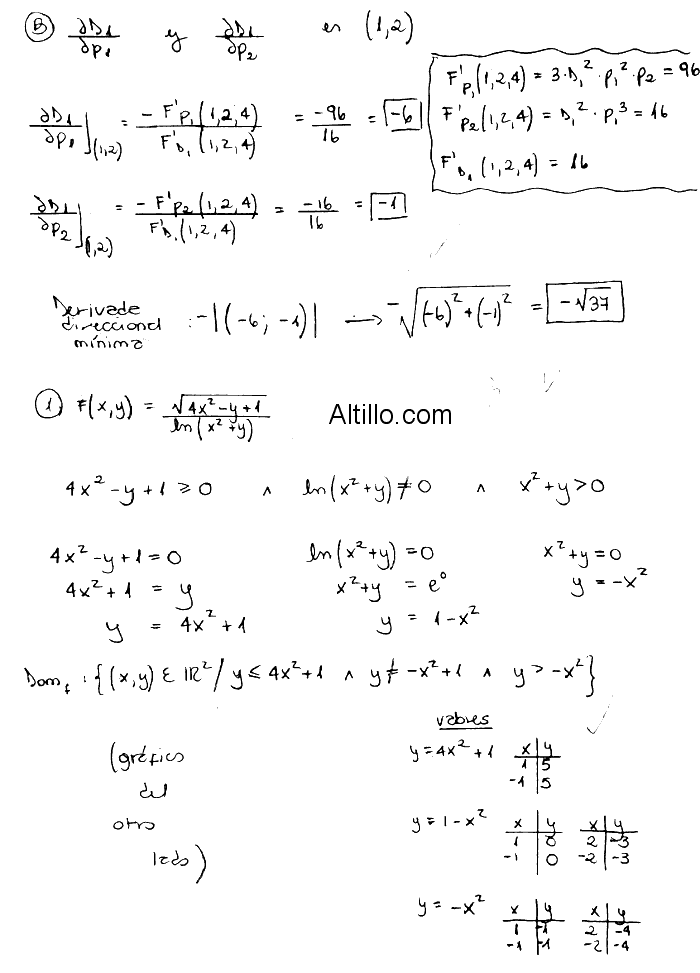 B) ∂D1/∂p1 y ∂D1/∂p2 en (1,2)
F'p1(1,2,4) = 3·D1²·p1²·p2 = 96
F'p2(1,2,4) = D1²·p1³ = 16
F'D1(1,2,4) = 16
∂D1/∂p1](1,2) = -F'p1(1,2,4)/F'D1(1,2,4) = -96/16 = -6
∂D1/∂p2](1,2) = -F'p2(1,2,4)/F'D1(1,2,4) = -16/16 = -1
Derivada
direccional : -|(-6; -1)| → -√((-6)²+(-1)²) = -√37
mínima
1) F(x,y) = √(4x²-y+1)/ln(x²+y)
Altillo.com
4x²-y+1 ≥ 0 ∧ ln(x²+y) ≠ 0 ∧ x²+y > 0
4x²-y+1 = 0 ln(x²+y) = 0 x²+y = 0
4x²+1 = y x²+y = e⁰ y = -x²
y = 4x²+1 y = 1-x²
Domf : {(x,y) ε IR² / y ≤ 4x²+1 ∧ y ≠ -x²+1 ∧ y > -x²}
valores
(gráfico
del
otro
lado)
y = 4x²+1 x|y
1|5
-1|5
y = 1-x² x|y x|y
1|0 2|-3
-1|0 -2|-3
y = -x² x|y x|y
1|-1 2|-4
-1|-1 -2|-4